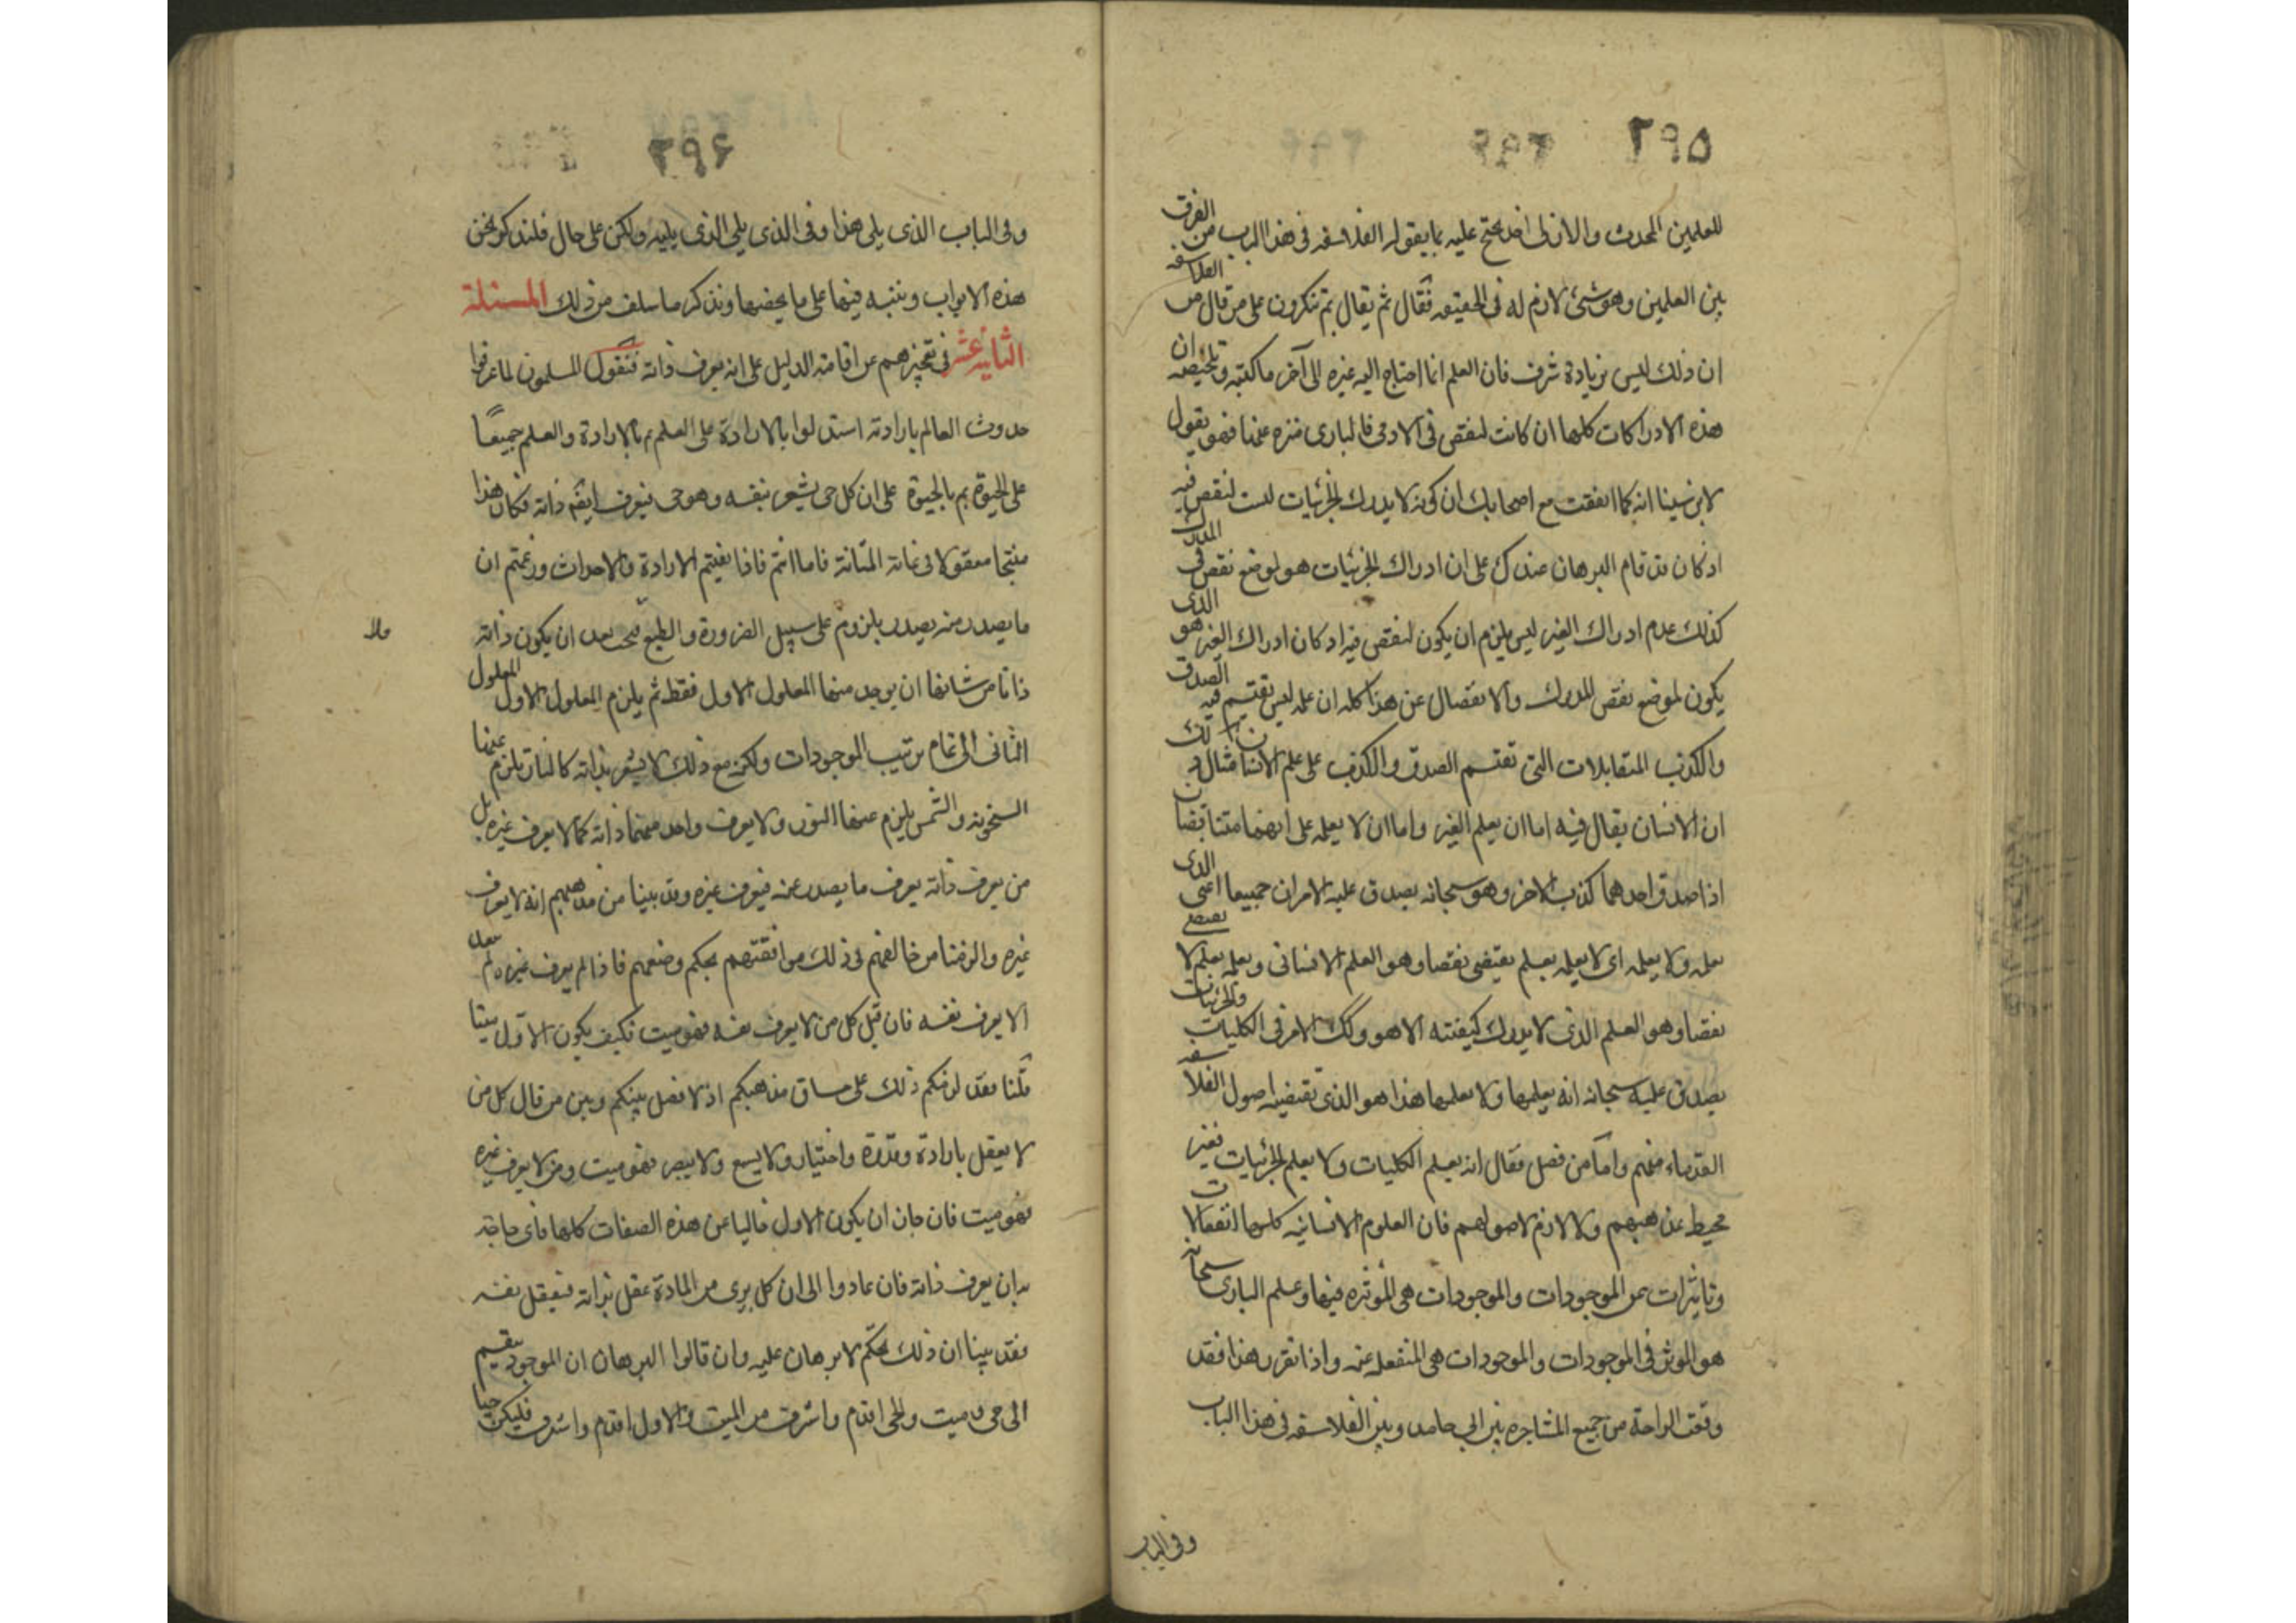 ٢٩٥
للعلمين المحدث والازلى اخذ يحتج عليه بما يقوله الفلاسفه فى هذا الباب من الفرق
بين العلمين وهو شئ لازم له فى الحقيقه فقال ثم يقال بم تنكرون على من قال من الفلاسفه
ان ذلك ليس بزيادة شرف فان العلم انما احتاج اليه غيره الى آخر ما كتبه وتلخيصه ان
هذه الادراكات كلها ان كانت لنقص فى الادمى فالبارى منزه عنها فهو يقول
لابن سينا انه كما اتفقت مع اصحابك ان كونه لا يدرك الجزئيات ليست لنقص فيه
اذ كان قد قام البرهان عندك على ان ادراك الجزئيات هو لموضع نقص فى المدرك
كذلك عدم ادراك الغير ليس يلزم ان يكون لنقص فيه اذ كان ادراك الغير هو الذى
يكون لموضع نقص المدرك والانفصال عن هذا كله ان علمه ليس يقتسم فيه الصدق
والكذب المتقابلات التى تقتسم الصدق والكذب على علم الانسان مثال ذلك
ان الانسان يقال فيه اما ان يعلم الغير واما ان لا يعلمه على انهما متناقضان
اذا صدق احدهما كذب الاخر وهو سبحانه يصدق عليه الامران جميعا اعنى الذى
يعلمه ولا يعلمه اى لا يعلمه بعلم يقتضى نقصا وهو العلم الانسانى ويعلمه بعلم لا يقتضى
نقصا وهو العلم الذى لا يدرك كيفيته الا هو وكك الامر فى الكليات والجزئيات
يصدق عليه سبحانه انه يعلمها ولا يعلمها هذا هو الذى تقتضيه اصول الفلاسفه
القدماء منهم واما من فصل فقال انه يعلم الكليات ولا يعلم الجزئيات فغير
محيط بمذهبهم ولا لازم لاصولهم فان العلوم الانسانيه كلها انفعالات
وتاثيرات عن الموجودات والموجودات هى الموثره فيها وعلم البارى سبحانه
هو الموثر فى الموجودات والموجودات هى المنفعله عنه واذا تقرر هذا فقد
وقعت الراحة من جميع المشاجره بين ابى حامد وبين الفلاسفه فى هذا الباب
وفى الباب
٢٩۶
وفى الباب الذى يلى هذا وفى الذى يلى الذى يليه ولكن على حال فلنذكر نحن
هذه الابواب وننبه فيها على ما يخصها ونذكر ما سلف من ذلك المسئلة
الثانيه عشر فى تعجيزهم عن اقامة الدليل على انه يعرف ذاته فنقول المسلمون لما عرفوا
حدوث العالم بارادته استدلوا بالارادة على العلم ثم بالارادة والعلم جميعًا
على الحيوة ثم بالحيوة على ان كل حى يشعر بنفسه وهو حى فيعرف ايضه ذاته فكان هذا
منهجا معقولا فى غاية المتانة فاما انتم فاذا نفيتم الارادة والاحداث وزعمتم ان
ما يصدر منه يصدر بلزوم على سبيل الضرورة والطبع فبحث بعد ان يكون ذاته
ذاتا من شانها ان يوجد منها المعلول الاول فقط ثم يلزم المعلول الاول المعلول
الثانى الى تمام ترتيب الموجودات ولكن مع ذلك لا يشعر بذاته كالنار يلزم عنها
السخونه والشمس يلزم عنها النور ولا يعرف واحد منهما ذاته كما لا يعرف غيره بل
من يعرف ذاته يعرف ما يصدر عنه فيعرف غيره وقد بينا من مذهبهم انه لا يعرف
غيره والزمنا من خالفهم فى ذلك موافقتهم بحكم وضعهم فاذا لم يعرف غيره لم يبعد
الا يعرف نفسه فان قيل كل من لا يعرف نفسه فهو ميت فكيف يكون الاول ميتا
قلنا فقد لزمكم ذلك على مساق مذهبكم اذ لا فصل بينكم وبين من قال كل من
لا يفعل بارادة وقدرة واختيار ولا يسمع ولا يبصر فهو ميت ومن لا يعرف غيره
فهو ميت فان جاز ان يكون الاول خاليا عن هذه الصفات كلها فاى حاجة
به ان يعرف ذاته فان عادوا الى ان كل برى من المادة عقل بذاته فيعقل نفسه
فقد بينا ان ذلك تحكم لا برهان عليه وان قالوا البرهان ان الموجود ينقسم
الى حى وميت والحى اقدم واشرف من الميت والاول اقدم واشرف فليكن حيا